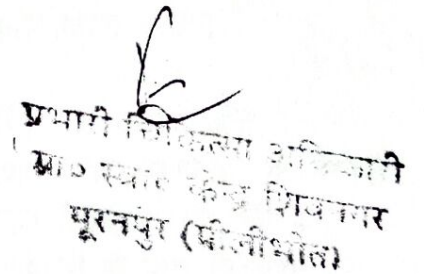 प्रभारी चिकित्सा अधिकारी
प्रा० स्वा० केन्द्र शिवनगर
पूरनपुर (पीलीभीत)